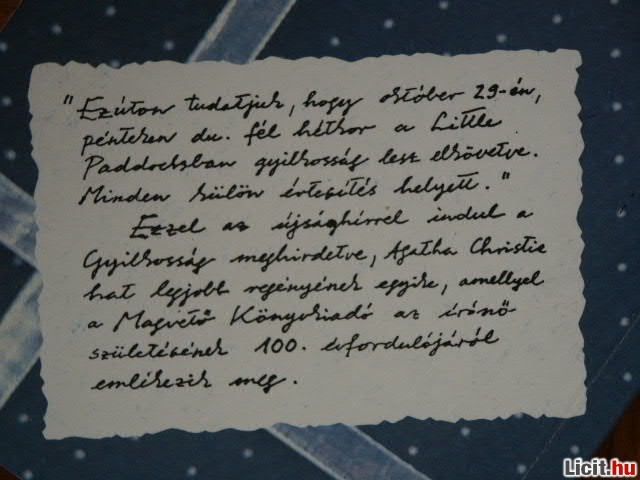 "Ezúton tudatjuk, hogy október 29-én,
pénteken du. fél hétkor a Little
Paddocksban gyilkosság lesz elkövetve.
Minden külön értesítés helyett."
Ezzel az újsághírrel indul a
Gyilkosság meghirdetve, Agatha Christie
hat legjobb regényének egyike, amellyel
a Magvető Könyvkiadó az írónő
születésének 100. évfordulójáról
emlékezik meg.
Licit.hu